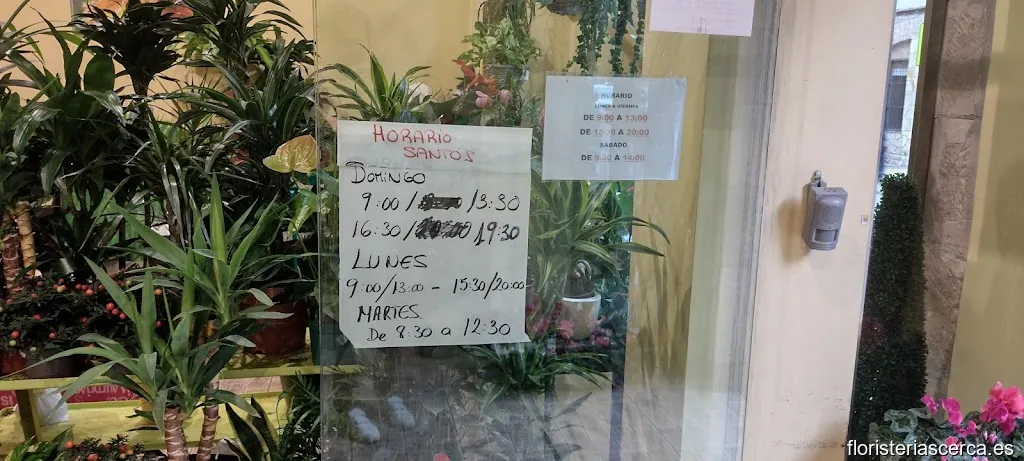 HORARIO
SANTOS
DOMINGO
9:00 / 13:30
16:30 / 19:30
LUNES
9:00/13:00 - 15:30/20:00
MARTES
De 8:30 a 12:30
HORARIO
LUNES A VIERNES
DE 9:00 A 13:00
DE 15:30 A 20:00
SABADO
DE 9:00 A 14:00
floristeriascerca.es